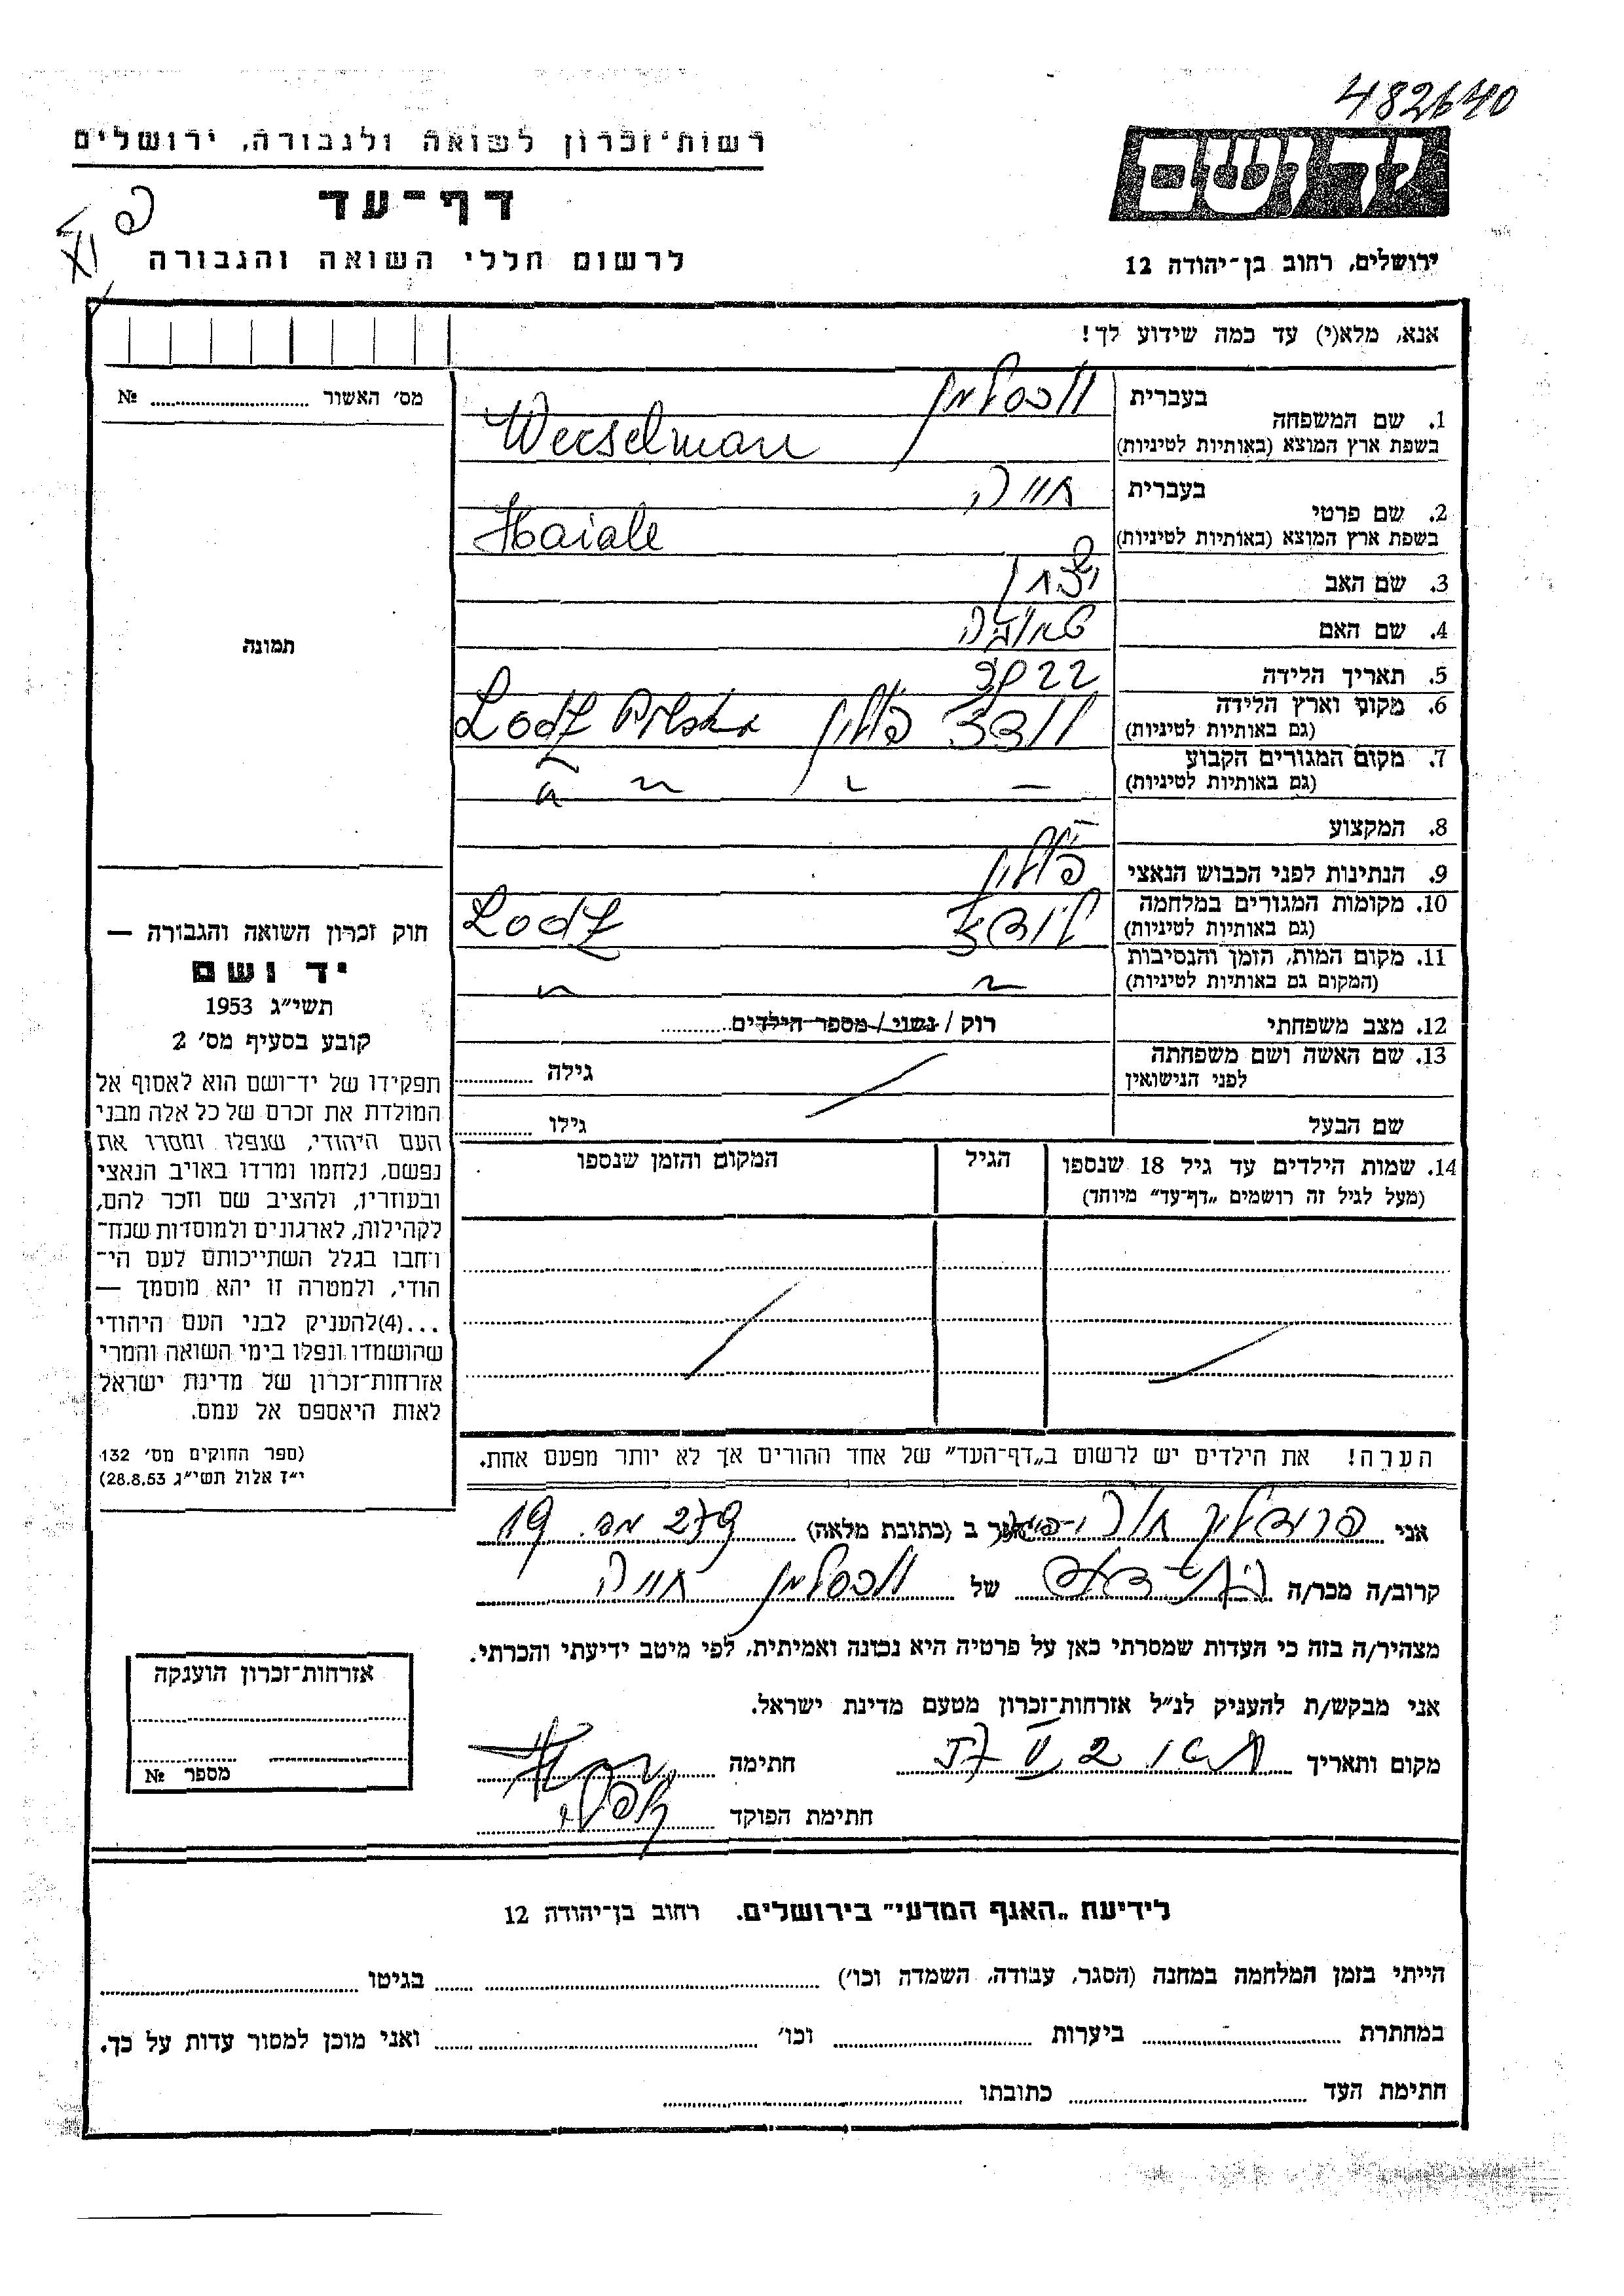 482640
רשות־זכרון לשואה ולגבורה, ירושלים
יד ושם
דף־עד
לרשום חללי השואה והגבורה
ירושלים, רחוב בן־יהודה 12
אנא, מלא(י) עד כמה שידוע לך!
מס׳ האשור № 
תמונה
1. שם המשפחה בעברית וכסלמן
בשפת ארץ המוצא (באותיות לטיניות) Wecselman
2. שם פרטי בעברית חייה
בשפת ארץ המוצא (באותיות לטיניות) Haiale
3. שם האב
4. שם האם
5. תאריך הלידה 22
6. מקום וארץ הלידה לודז פולין Lodz Polska
(גם באותיות לטיניות)
7. מקום המגורים הקבוע
(גם באותיות לטיניות)
8. המקצוע —
9. הנתינות לפני הכבוש הנאצי פולין
10. מקומות המגורים במלחמה לודז Lodz
(גם באותיות לטיניות)
11. מקום המות, הזמן והנסיבות
(המקום גם באותיות לטיניות)
12. מצב משפחתי רוק / נשוי / מספר הילדים
13. שם האשה ושם משפחתה גילה
לפני הנישואין
שם הבעל גילו
14. שמות הילדים עד גיל 18 שנספו הגיל המקום והזמן שנספו
(מעל לגיל זה רושמים „דף־עד״ מיוחד)
חוק זכרון השואה והגבורה —
יד ושם
תשי״ג 1953
קובע בסעיף מס׳ 2
תפקידו של יד־ושם הוא לאסוף אל
המולדת את זכרם של כל אלה מבני
העם היהודי, שנפלו ומסרו את
נפשם, נלחמו ומרדו באויב הנאצי
ובעוזריו, ולהציב שם וזכר להם,
לקהילות, לארגונים ולמוסדות שנח־
רחבו בגלל השתייכותם לעם הי־
הודי, ולמטרה זו יהא מוסמך —
...(4)להעניק לבני העם היהודי
שהושמדו ונפלו בימי השואה והמרי
אזרחות־זכרון של מדינת ישראל
לאות היאספם אל עמם.
(ספר החוקים מס׳ 132
י״ז אלול תשי״ג 28.8.53)
הערה! את הילדים יש לרשום ב„דף־העד״ של אחד ההורים אך לא יותר מפעם אחת.
אני הגר ב (כתובת מלאה) 19
קרוב/ה מכר/ה של וכסלמן חייה
מצהיר/ה בזה כי העדות שמסרתי כאן על פרטיה היא נכונה ואמיתית, לפי מיטב ידיעתי והכרתי.
אני מבקש/ת להעניק לנ״ל אזרחות־זכרון מטעם מדינת ישראל.
מקום ותאריך חתימה
חתימת הפוקד
אזרחות־זכרון הוענקה
מספר №
לידיעת „האגף המדעי״ בירושלים. רחוב בן־יהודה 12
הייתי בזמן המלחמה במחנה (הסגר, עבודה, השמדה וכו׳) בגיטו
במחתרת ביערות וכו׳ ואני מוכן למסור עדות על כך.
חתימת העד כתובתו